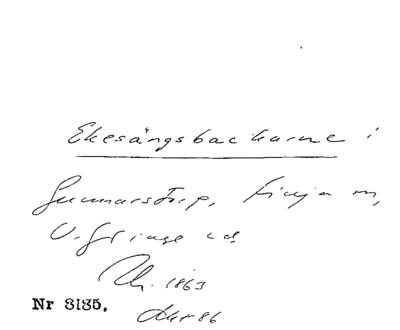 Ekesångsbackarne i
Gunnarstorp, Finja sn,
V. Göinge hd.
1863
Nr 3135.